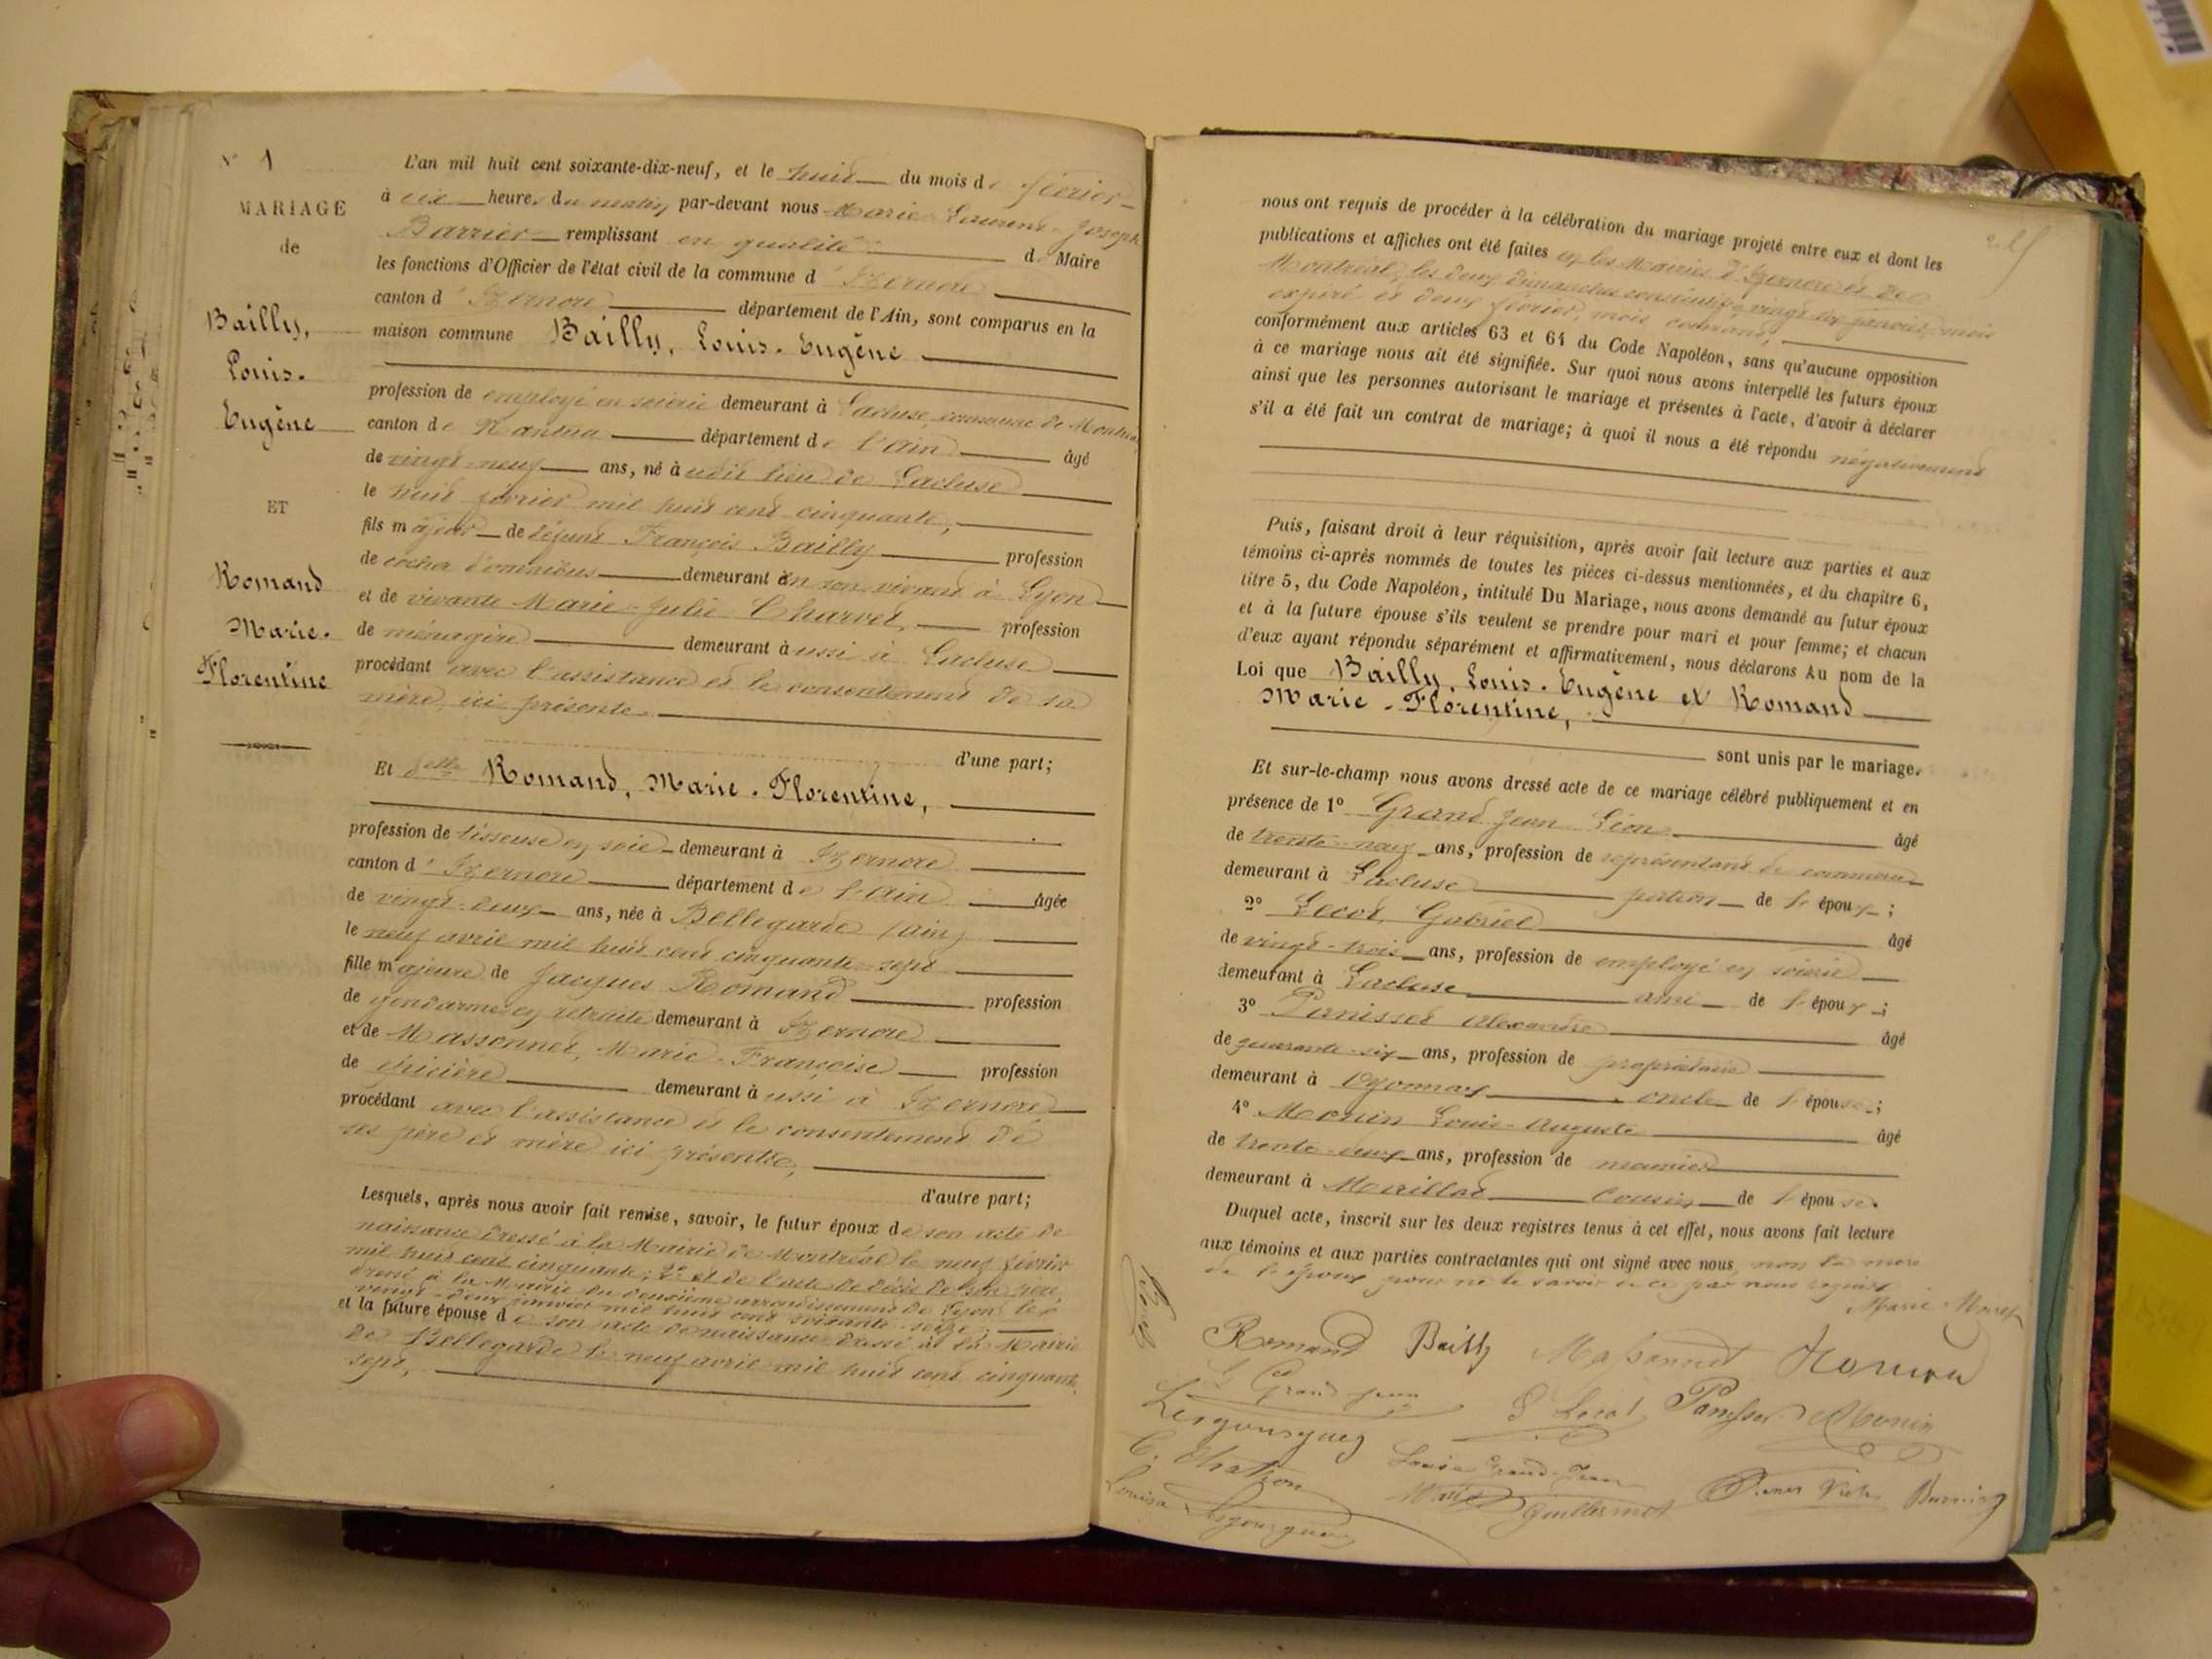 N° 1
MARIAGE
de
Bailly,
Louis-
Eugène
ET
Romand
Marie-
Florentine
L'an mil huit cent soixante-dix-neuf, et le huit du mois de février
à dix heures du matin, par-devant nous Marie-Laurent-Joseph
Barrier remplissant en qualité de Maire
les fonctions d'Officier de l'état civil de la commune d'Izernore
canton d'Izernore département de l'Ain, sont comparus en la
maison commune Bailly, Louis-Eugène
profession de employé en soierie demeurant à Lacluse, commune de Montréal
canton de Nantua département de l'Ain âgé
de vingt-neuf ans, né à udit lieu de Lacluse
le huit février mil huit cent cinquante,
fils majeur de défunt François Bailly profession
de cocher d'omnibus demeurant en son vivant à Lyon
et de vivante Marie-Julie Charvet, profession
de ménagère demeurant aussi à Lacluse
procédant avec l'assistance et le consentement de sa
mère, ici présente.
d'une part;
Et delle Romand, Marie-Florentine,
profession de tisseuse en soie demeurant à Izernore
canton d'Izernore département de l'Ain âgée
de vingt-deux ans, née à Bellegarde (Ain)
le neuf avril mil huit cent cinquante-sept
fille majeure de Jacques Romand profession
de gendarme en retraite demeurant à Izernore
et de Massonnet, Marie-Françoise profession
de épicière demeurant aussi à Izernore
procédant avec l'assistance et le consentement de
ses père et mère ici présents,
d'autre part;
Lesquels, après nous avoir fait remise, savoir, le futur époux de son acte de
naissance dressé à la Mairie de Montréal le neuf février
mil huit cent cinquante; 2° et de l'acte de décès de son père,
dressé à la Mairie du deuxième arrondissement de Lyon le
vingt-deux janvier mil huit cent soixante-seize;
et la future épouse de son acte de naissance dressé à la Mairie
de Bellegarde le neuf avril mil huit cent cinquante
sept,
nous ont requis de procéder à la célébration du mariage projeté entre eux et dont les
publications et affiches ont été faites en les Mairies d'Izernore et de
Montréal, les deux dimanches consécutifs vingt six janvier, mois
expiré et deux février, mois courant,
conformément aux articles 63 et 64 du Code Napoléon, sans qu'aucune opposition
à ce mariage nous ait été signifiée. Sur quoi nous avons interpellé les futurs époux
ainsi que les personnes autorisant le mariage et présentes à l'acte, d'avoir à déclarer
s'il a été fait un contrat de mariage; à quoi il nous a été répondu négativement
Puis, faisant droit à leur réquisition, après avoir fait lecture aux parties et aux
témoins ci-après nommés de toutes les pièces ci-dessus mentionnées, et du chapitre 6,
titre 5, du Code Napoléon, intitulé Du Mariage, nous avons demandé au futur époux
et à la future épouse s'ils veulent se prendre pour mari et pour femme; et chacun
d'eux ayant répondu séparément et affirmativement, nous déclarons Au nom de la
Loi que Bailly, Louis-Eugène et Romand
Marie-Florentine,
sont unis par le mariage.
Et sur-le-champ nous avons dressé acte de ce mariage célébré publiquement et en
présence de 1° Grand Jean Léon âgé
de trente-neuf ans, profession de représentant de commerce
demeurant à Lacluse patron de l'époux;
2° Lecot, Gabriel âgé
de vingt-trois ans, profession de employé en soierie
demeurant à Lacluse ami de l'époux;
3° Panisset Alexandre âgé
de quarante-six ans, profession de propriétaire
demeurant à Oyonnax oncle de l'épouse;
4° Monin Louis-Auguste âgé
de trente-deux ans, profession de meunier
demeurant à Meillat cousin de l'épouse.
Duquel acte, inscrit sur les deux registres tenus à cet effet, nous avons fait lecture
aux témoins et aux parties contractantes qui ont signé avec nous, non la mère
de l'époux pour ne le savoir de ce par nous requise
Romand Bailly Massonnet Romand
L Grand Jean G Lecot Panisset Monin
Lesgourgues
C. Chatron Louise Grand-Jean
Marie Guillermot
Louisa Lesgourgues